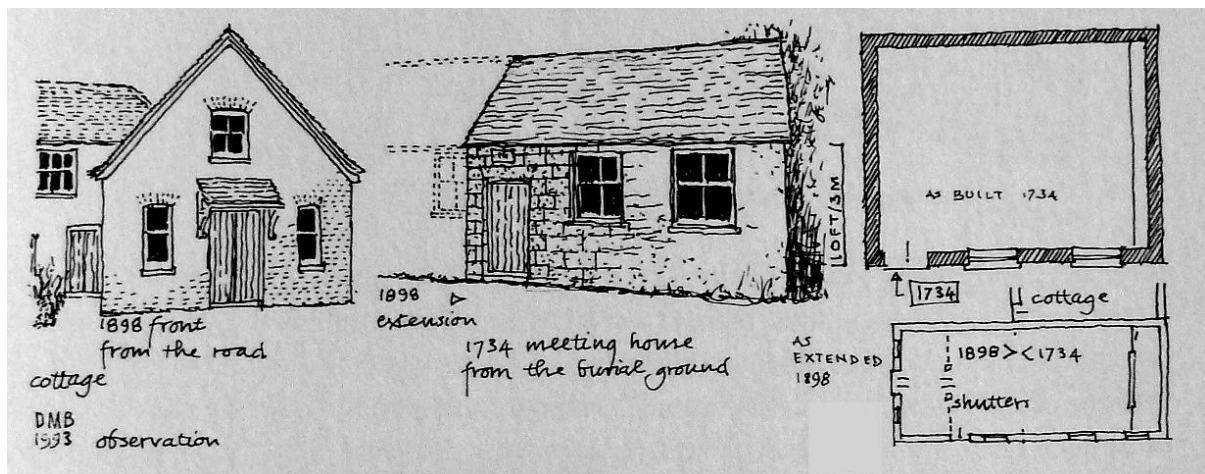 1898 front
from the road
cottage
DMB
1993 observation
1898
extension
1734 meeting house
from the burial ground
10FT/3M
AS BUILT 1734
1734
cottage
AS
EXTENDED
1898
1898 > < 1734
shutters